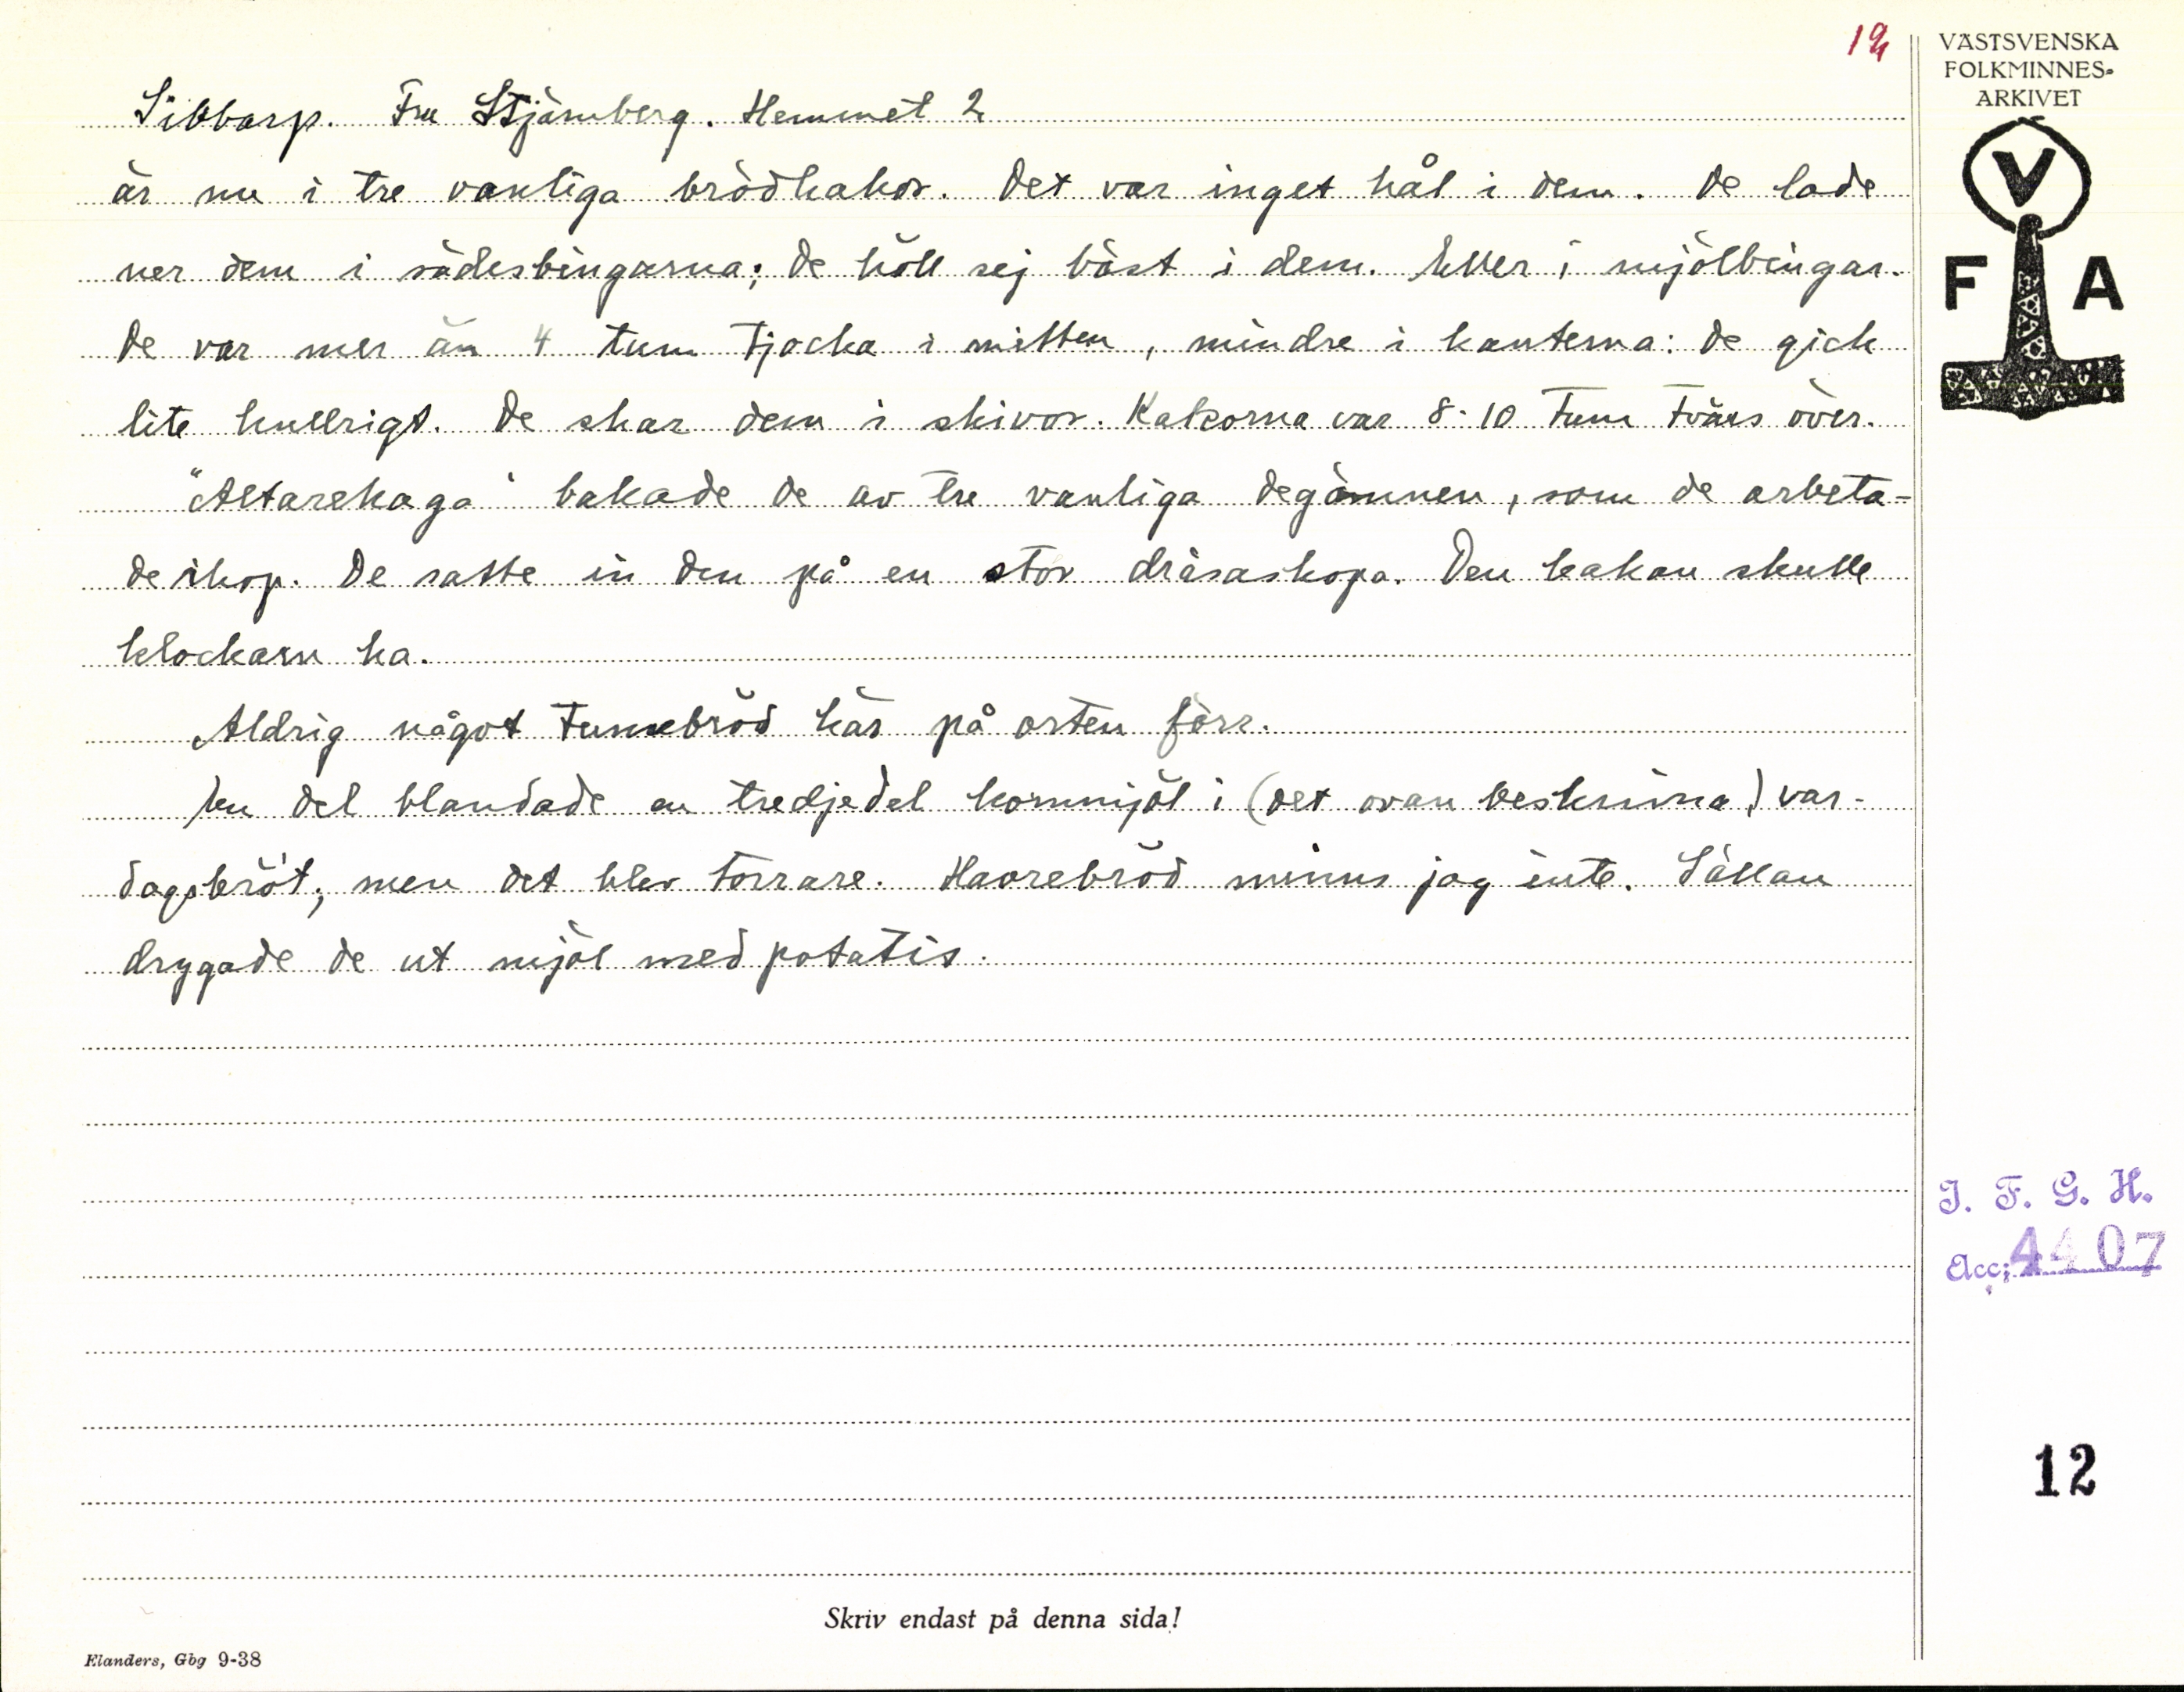 VÄSTSVENSKA
FOLKMINNES-
ARKIVET
V
F A
Sibbarp. Fru Stjärnberg. Hemmet 2
är nu i tre vanliga brödkakor. Det var inget hål i dem. De lade
ner dem i sädesbingarna; de höll sej bäst i dem. Eller i mjölbingar.
De var mer än 4 tum tjocka i mitten, mindre i kanterna: de gick
lite kullrigt. De skar dem i skivor. Kakorna var 8-10 tum tvärs över.
"Altarekaga" bakade de av tre vanliga degämnen, som de arbeta-
de ihop. De satte in den på en stor dräsaskopa. Den kakan skulle
klockarn ha.
Aldrig något tunnebröd här på orten förr.
En del blandade en tredjedel kornmjöl i (det ovan beskrivna) var-
dagsbröt; men det blev torrare. Havrebröd minns jag inte. Sällan
drygade de ut mjöl med potatis.
I. F. G. H.
Acc: 4407
12
Skriv endast på denna sida!
Elanders, Gbg 9-38